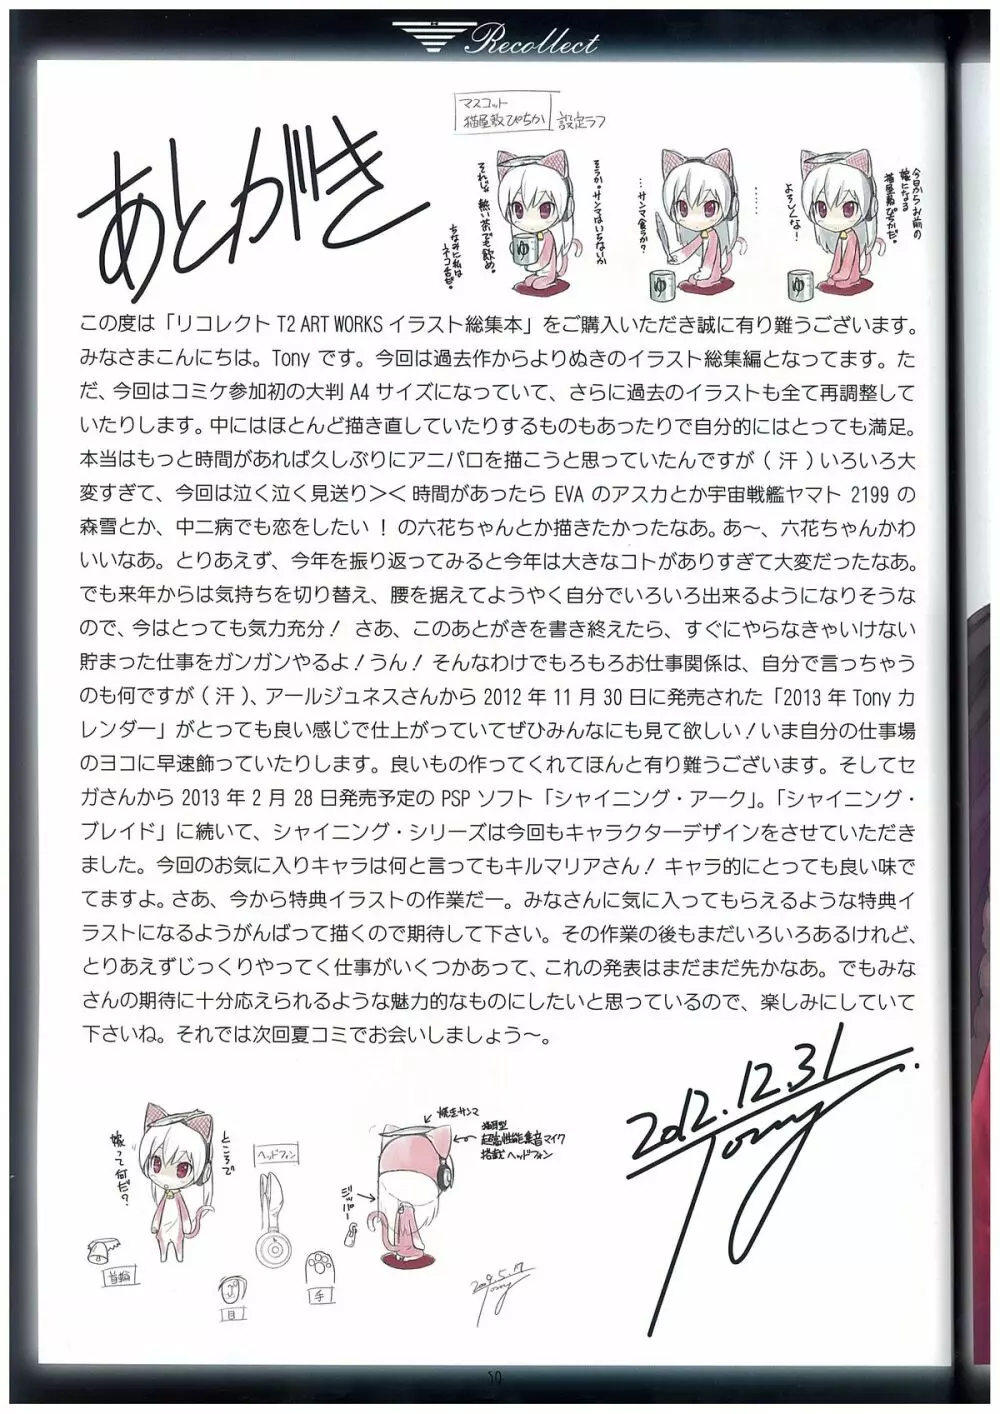 Recollect
マスコット
猫屋敷ぴちか
設定ラフ
あとがき
今日からお前の
嫁になる
猫屋敷ぴちかだ。
よろしくな!
……
…サンマ食うか?
そうか。サンマはいらないか
それじゃ
熱い茶でも飲め。
ちなみに私は
ネコ舌だ。
ゆ
ゆ
ゆ
この度は「リコレクト T2 ART WORKS イラスト総集本」をご購入いただき誠に有り難うございます。
みなさまこんにちは。Tony です。今回は過去作からよりぬきのイラスト総集編となってます。た
だ、今回はコミケ参加初の大判 A4 サイズになっていて、さらに過去のイラストも全て再調整して
いたりします。中にはほとんど描き直していたりするものもあったりで自分的にはとっても満足。
本当はもっと時間があれば久しぶりにアニパロを描こうと思っていたんですが ( 汗 ) いろいろ大
変すぎて、今回は泣く泣く見送り>< 時間があったら EVA のアスカとか宇宙戦艦ヤマト 2199 の
森雪とか、中二病でも恋をしたい! の六花ちゃんとか描きたかったなあ。あ〜、六花ちゃんかわ
いいなあ。とりあえず、今年を振り返ってみると今年は大きなコトがありすぎて大変だったなあ。
でも来年からは気持ちを切り替え、腰を据えてようやく自分でいろいろ出来るようになりそうな
ので、今はとっても気力充分! さあ、このあとがきを書き終えたら、すぐにやらなきゃいけない
貯まった仕事をガンガンやるよ!うん! そんなわけでもろもろお仕事関係は、自分で言っちゃう
のも何ですが ( 汗 )、アールジュネスさんから 2012 年 11 月 30 日に発売された「2013 年 Tony カ
レンダー」がとっても良い感じで仕上がっていてぜひみんなにも見て欲しい!いま自分の仕事場
のヨコに早速飾っていたりします。良いもの作ってくれてほんと有り難うございます。そしてセ
ガさんから 2013 年 2 月 28 日発売予定の PSP ソフト「シャイニング・アーク」。「シャイニング・
ブレイド」に続いて、シャイニング・シリーズは今回もキャラクターデザインをさせていただき
ました。今回のお気に入りキャラは何と言ってもキルマリアさん! キャラ的にとっても良い味で
てますよ。さあ、今から特典イラストの作業だー。みなさんに気に入ってもらえるような特典イ
ラストになるようがんばって描くので期待して下さい。その作業の後もまだいろいろあるけれど、
とりあえずじっくりやってく仕事がいくつかあって、これの発表はまだまだ先かなあ。でもみな
さんの期待に十分応えられるような魅力的なものにしたいと思っているので、楽しみにしていて
下さいね。それでは次回夏コミでお会いしましょう〜。
2012.12.31
Tony
ところで
嫁って何だ?
ヘッドフォン
首輪
目
手
焼きサンマ
猫耳型
超高性能集音マイク
搭載ヘッドフォン
ジッパー
2009.5.17
Tony
50